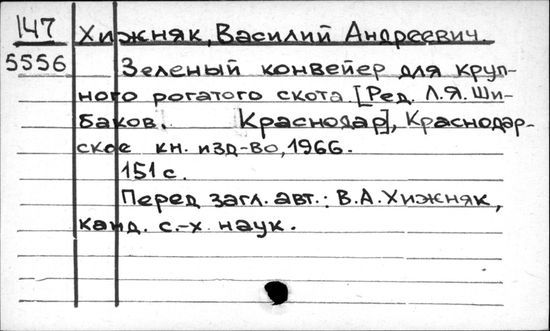 147 Хижняк, Василий Андреевич.
5556 Зеленый конвейер для круп-
ного рогатого скота. [Ред. Л.Я. Ши-
баков. Краснодар], Краснодар-
ское кн. изд-во, 1966.
151 с.
Перед загл. авт.: В.А. Хижняк,
канд. с.-х. наук.